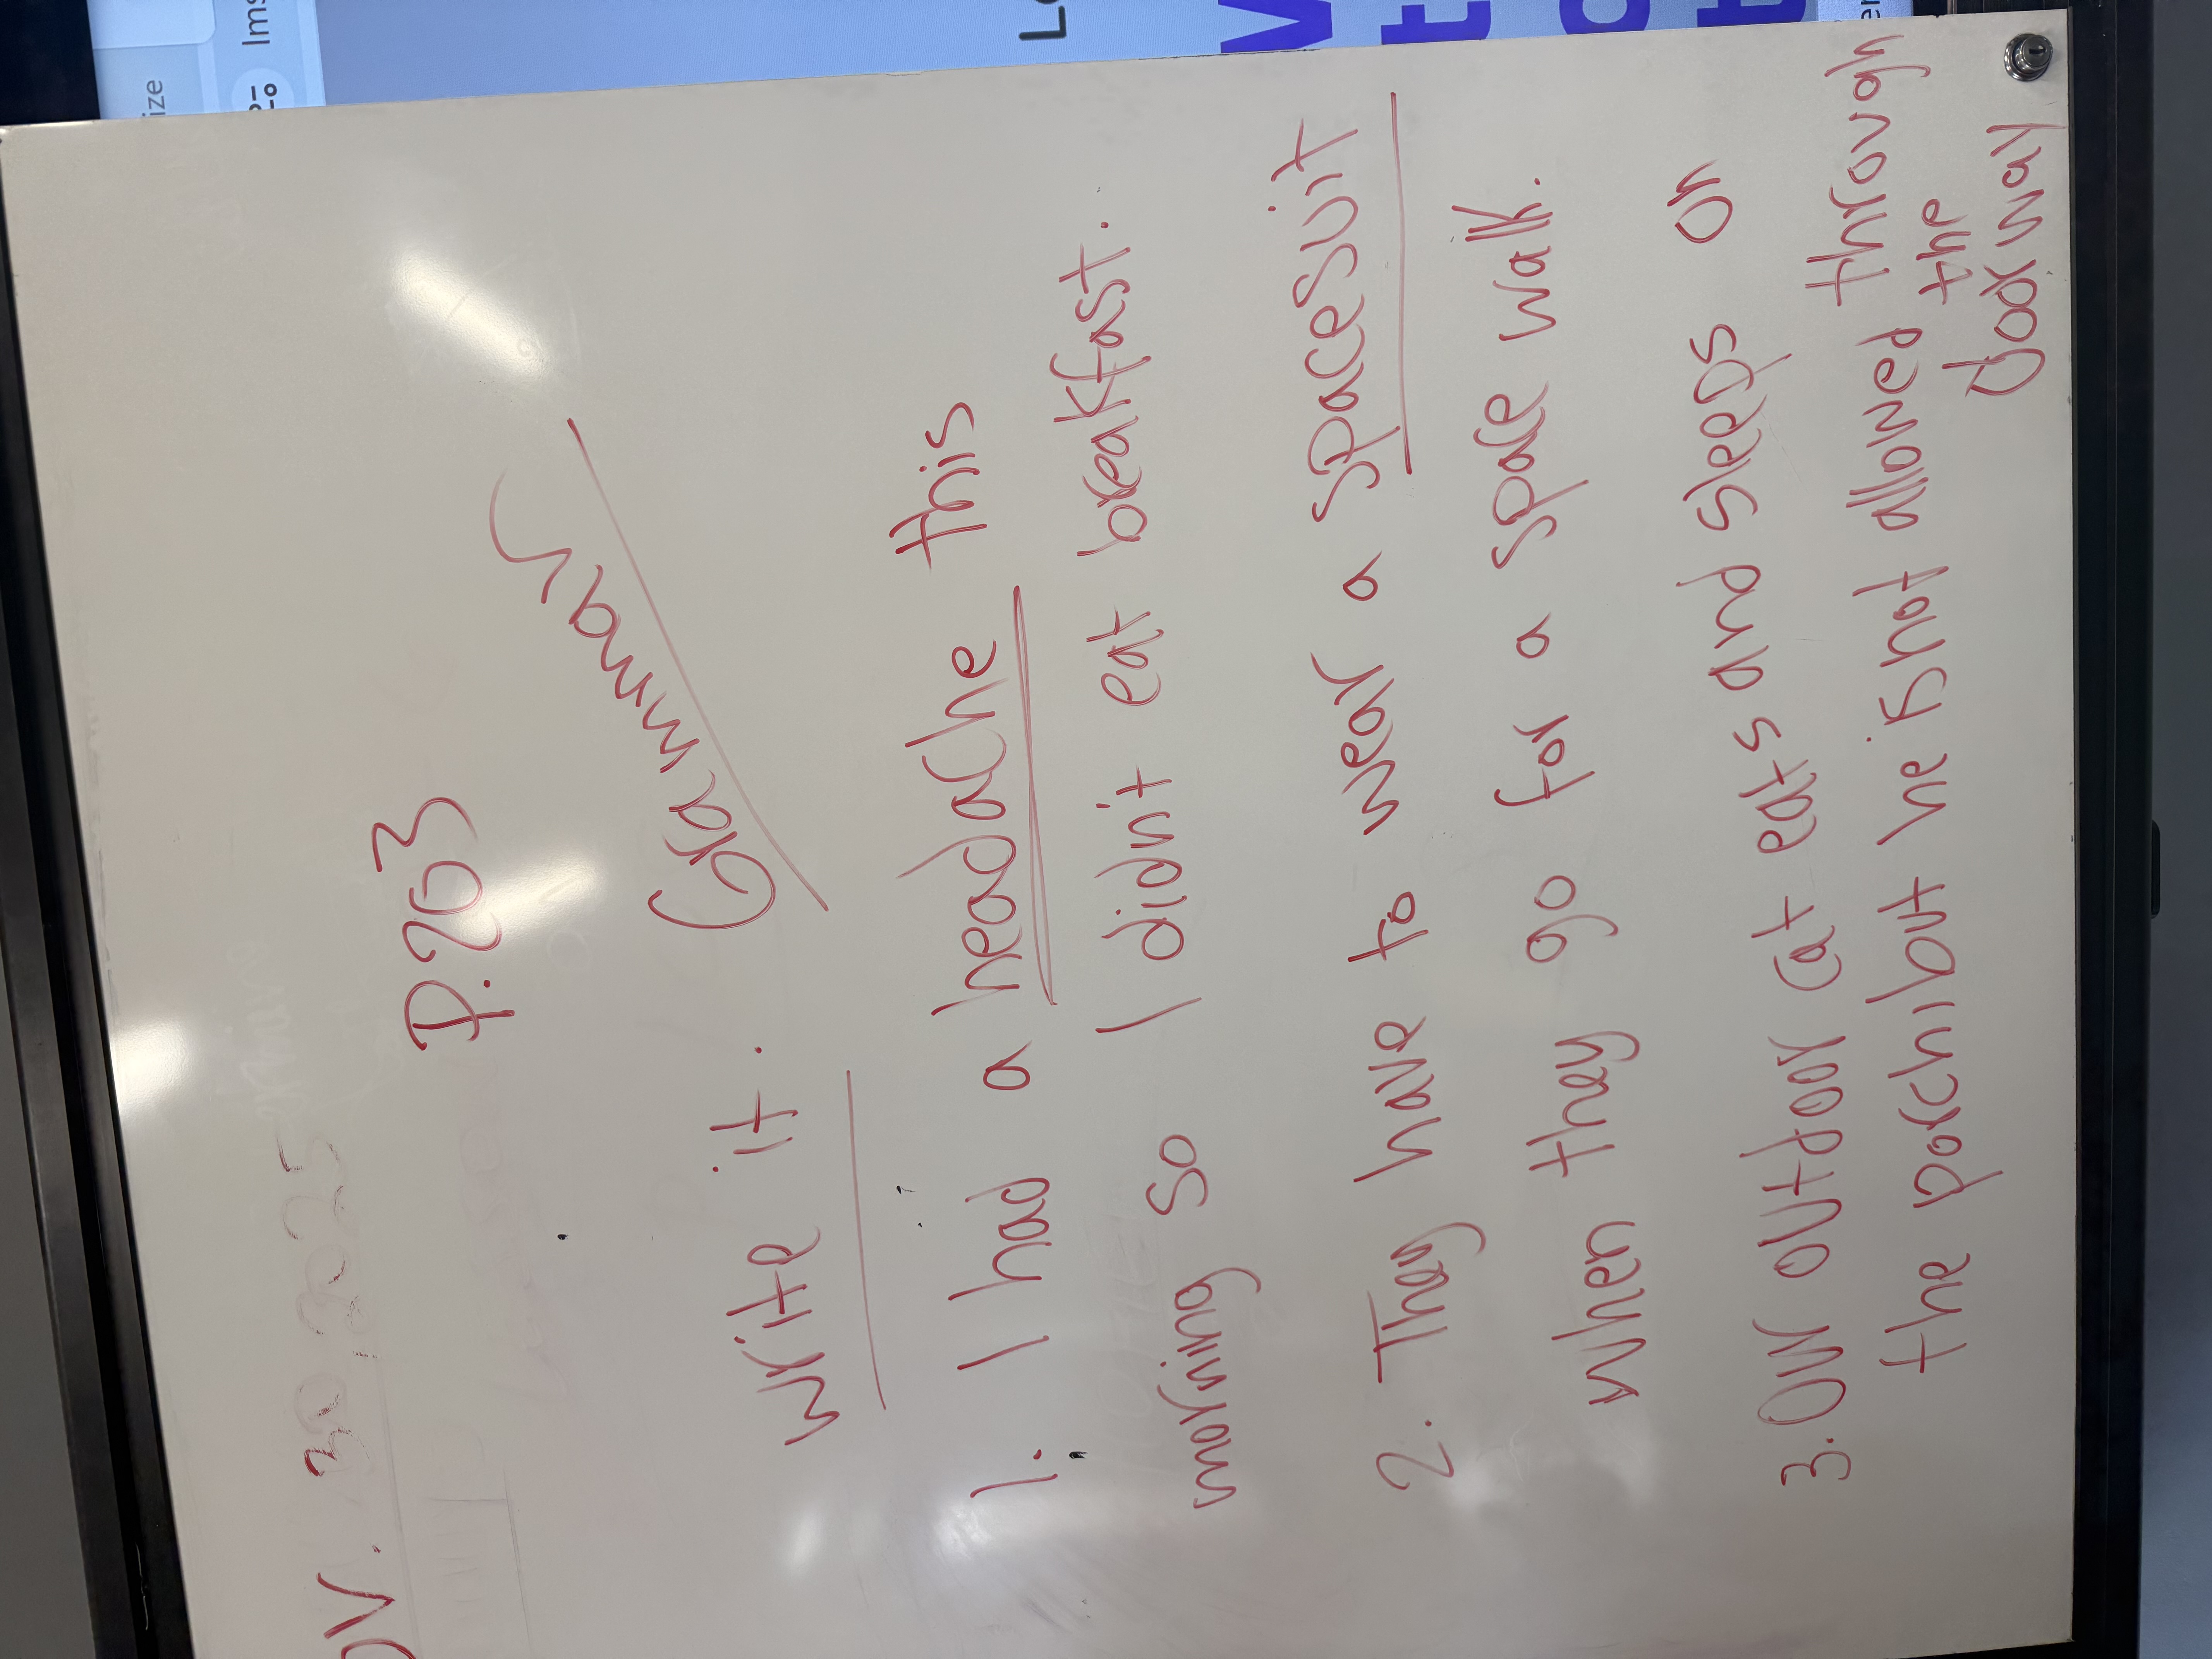 OV. 30, 2025
P. 203
Grammar
Write it.
1. I had a headache this
morning so I didn't eat breakfast.
2. They have to wear a spacesuit
when they go for a space walk.
3. Our outdoor cat eats and sleeps on
the porch, but he is not allowed through
the
doorway
ize
Ims